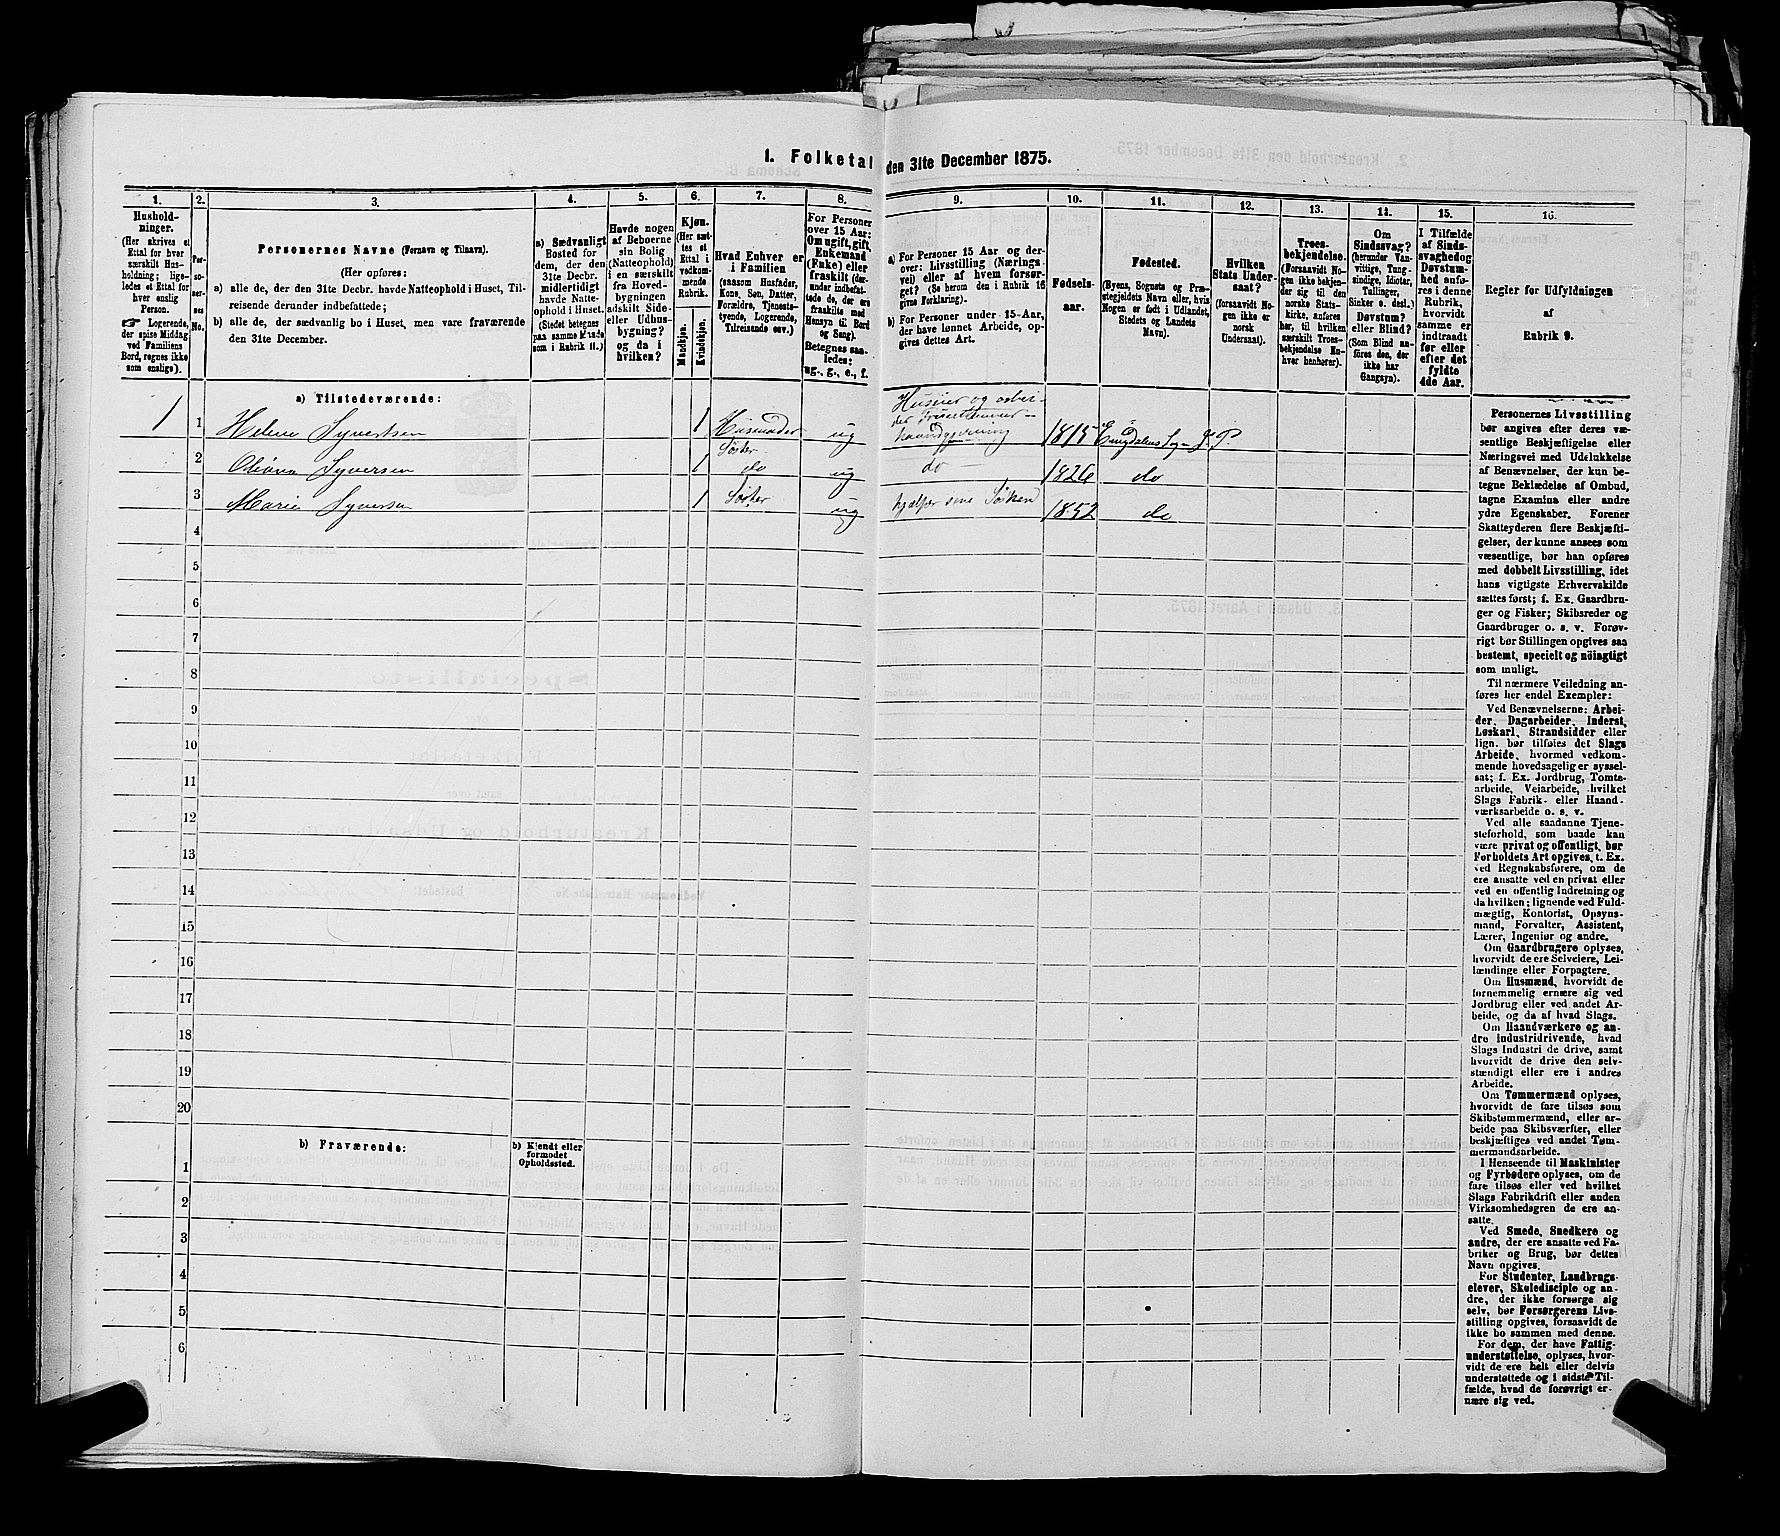 1. Folketal den 31te December 1875.
1.
2.
3.
4.
5.
6.
7.
8.
9.
10.
11.
12.
13.
14.
15.
16.
Hushold-
ninger.
(Her skrives et
Ettal for hver
særskilt Hus-
holdning; lige-
ledes et Ettal for
hver enslig
Person.
☞ Logerende,
der spise Middag
ved Familiens
Bord, regnes ikke
som enslige).
Per-
so-
ner-
nes
No.
Personernes Navne (Fornavn og Tilnavn).
(Her opføres:
a) alle de, der den 31te Decbr. havde Natteophold i Huset, Til-
reisende derunder indbefattede;
b) alle de, der sædvanlig bo i Huset, men vare fraværende
den 31te December.
a) Sædvanligt
Bosted for
dem, der den
31te Decbr.
midlertidigt
havde Natte-
ophold i Huset.
(Stedet betegnes
paa samme Maade
som i Rubrik 11.)
Havde nogen
af Beboerne
sin Bolig
(Natteophold)
i en særskilt
fra Hoved-
bygningen
adskilt Side-
eller Udhus-
bygning?
og da i
hvilken?
Kjøn.
(Her sæt-
tes et
Ettal i
vedkom-
mende
Rubrik.
Mandkjøn.
Kvindekjøn.
Hvad Enhver er
i Familien
(saasom Husfader,
Kone, Søn, Datter,
Forældre, Tjeneste-
tyende, Logerende,
Tilreisende osv.)
For Personer
over 15 Aar:
Om ugift, gift,
Enkemand
(Enke) eller
fraskilt (der-
under indbefat-
tede de, der ere
fraskilte med
Hensyn til Bord
og Seng).
Betegnes saa-
ledes:
ug., g., e., f.
a) For Personer 15 Aar og der-
over: Livsstilling (Nærings-
vei) eller af hvem forsør-
get? (Se herom den i Rubrik 16
givne Forklaring).
b) For Personer under 15-Aar,
der have lønnet Arbeide, op-
gives dettes Art.
Fødsels-
aar.
Fødested.
(Byens, Sognets og Præ-
stegjeldets Navn eller, hvis
Nogen er født i Udlandet,
Stedets og Landets
Navn).
Hvilken
Stats Under-
saat?
(forsaavidt No-
gen ikke er
norsk
Undersaat).
Troes-
bekjendelse.
(Forsaavidt No-
gen ikke bekjen-
der sig til den
norske Stats-
kirke, anføres
her, til hvilken
særskilt Troes-
bekjendelse En-
hver henhører).
Om
Sindssvag?
(herunder Van-
vittige, Tung-
sindige, Idioter,
Tullinger,
Sinker o. desl.)
Døvstum?
eller Blind?
(Som Blind an-
føres den, der
ikke har
Gangsyn).
I Tilfælde
af Sinds-
svaghed og
Døvstum-
hed anfø-
res i denne
Rubrik,
hvorvidt
samme er
indtraadt
før eller
efter det
fyldte
4de Aar.
Regler for Udfyldningen
af
Rubrik 9.
a) Tilstedeværende:
1 1 Helene Syvertsen 1 Husmoder ug Huseier og arbei-
haandgjerning 1815 S. P.
2 Syversen 1 Søster do ug do 1826 do
3 Marie Syversen 1 Søster ug hjælper sine 1852 do
4
5
6
7
8
9
10
11
12
13
14
15
16
17
18
19
20
b) Fraværende:
b) Kjendt eller
formodet
Opholdssted.
1
2
3
4
5
6
Personernes Livsstilling
bør angives efter deres væ-
sentlige Beskjæftigelse eller
Næringsvei med Udelukkelse
af Benævnelser, der kun be-
tegne Beklædelse af Ombud,
tagne Examina eller andre
ydre Egenskaber. Forener
Skatteyderen flere Beskjæfti-
gelser, der kunne ansees som
væsentlige, bør han opføres
med dobbelt Livsstilling, idet
hans vigtigste Erhvervskilde
sættes først; f. Ex. Gaardbru-
ger og Fisker; Skibsreder og
Gaardbruger o. s. v. Forøv-
rigt bør Stillingen opgives saa
bestemt, specielt og nöiagtigt
som muligt.
Til nærmere Veiledning an-
føres her endel Exempler:
Ved Benævnelserne: Arbei-
der, Dagarbeider, Inderst,
Løskarl, Strandsidder eller
lign. bør tilføies det Slags
Arbeide, hvormed vedkom-
mende hovedsagelig er syssel-
sat; f. Ex. Jordbrug, Tomte-
arbeide, Veiarbeide, hvilket
Slags Fabrik- eller Haand-
værksarbeide o. s. v.
Ved alle saadanne Tjene-
steforhold, som baade kan
være privat og offentligt, bør
Forholdets Art opgives, t. Ex.
ved Regnskabsførere, om de
ere ansatte ved en privat eller
ved en offentlig Indretning og
da hvilken; lignende ved Fuld-
mægtig, Kontorist, Opsyns-
mand, Forvalter, Assistent,
Lærer, Ingeniør og andre.
Om Gaardbrugere oplyses,
hvorvidt de ere Selveiere, Lei-
lændinge eller Forpagtere.
Om Husmænd, hvorvidt de
fornemmelig ernære sig ved
Jordbrug eller ved andet Ar-
beide, og da af hvad Slags.
Om Haandværkere og an-
dre industridrivende, hvad
Slags Industri de drive, samt
hvorvidt de drive den selv-
stændigt eller ere i andres
Arbeide.
Om Tømmermænd oplyses,
hvorvidt de fare tilsøs som
Skibstømmermænd, eller ar-
beide paa Skibsværfter, eller
beskjæftiges ved andet Tøm-
mermandsarbeide.
I Henseende til Maskinister
og Fyrbødere oplyses, om de
fare tilsøs eller ved hvilket
Slags Fabrikdrift eller anden
Virksomhedsgren de ere an-
satte.
Ved Smede, Snedkere og
andre, der ere ansatte ved Fa-
briker og Brug, bør dettes
Navn opgives.
For Studenter, Landbrugs-
elever, Skoledisciple og an-
dre, der ikke forsørge sig
selv, bør Forsørgerens Livs-
stilling opgives, forsaavidt de
ikke bo sammen med denne.
For dem, der have Fattig-
understøttelse, oplyses, hvor-
vidt de ere helt eller delvis
understøttede og i sidste Til-
fælde, hvad de forøvrigt er-
nære sig ved.